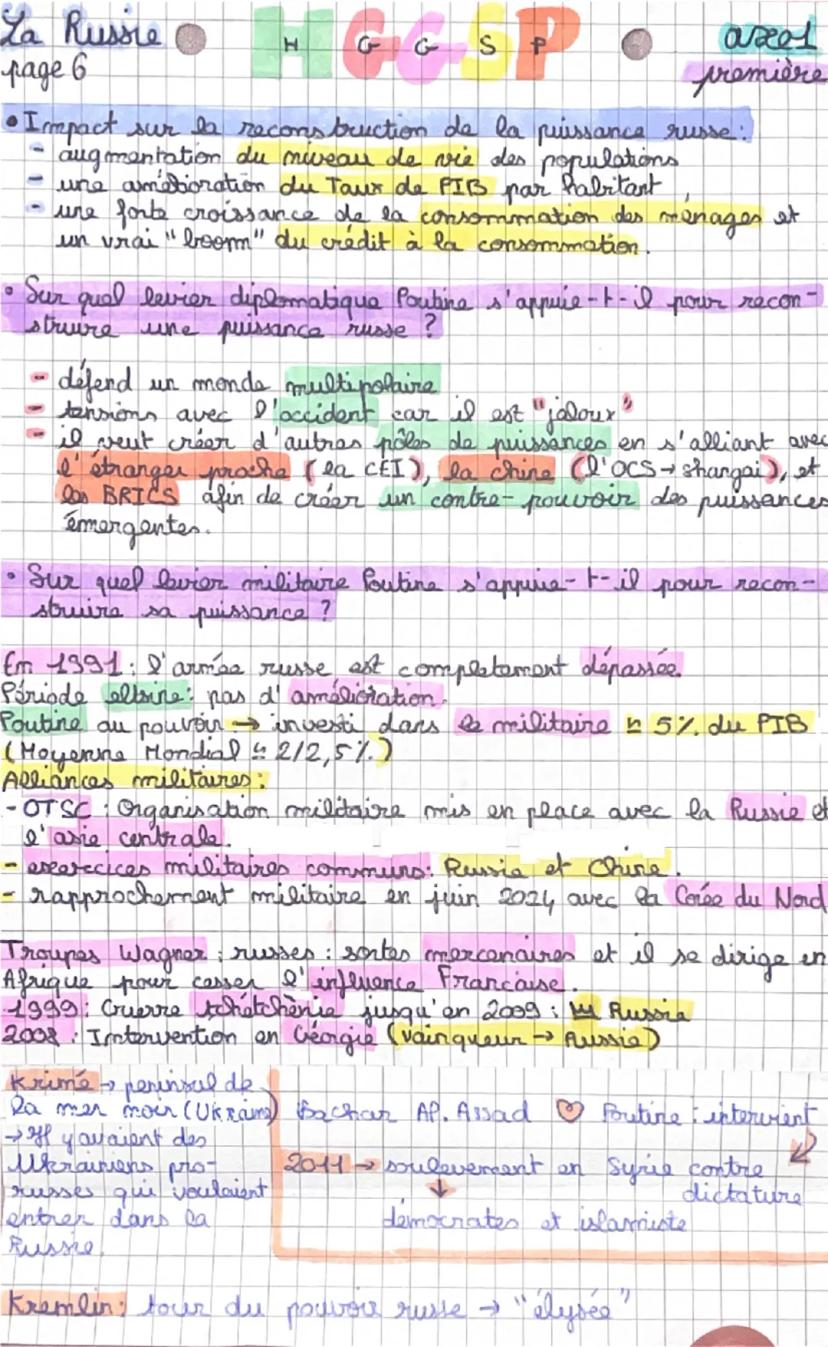 La Russie HGGSP axe 1
page 6 première
• Impact sur la reconstruction de la puissance russe :
- augmentation du niveau de vie des populations
- une amélioration du Taux de PIB par habitant,
- une forte croissance de la consommation des ménages et
un vrai "boom" du crédit à la consommation.
• Sur quel levier diplomatique Poutine s'appuie-t-il pour recon-
struire une puissance russe ?
- défend un monde multipolaire
- tensions avec l'occident car il est "jaloux"
- il veut créer d'autres pôles de puissances en s'alliant avec
l'étranger proche (la CEI), la chine (l'OCS → shangai), et
les BRICS afin de créer un contre-pouvoir des puissances
émergentes.
• Sur quel levier militaire Poutine s'appuie-t-il pour recon-
struire sa puissance ?
En 1991 : l'armée russe est completement dépassée.
Période eltsine : pas d'amélioration.
Poutine au pouvoir → investi dans le militaire ≃ 5% du PIB
(Moyenne Mondial ≃ 2/2,5%)
Alliances militaires :
- OTSC : Organisation militaire mis en place avec la Russie et
l'asie centrale.
- exercices militaires communs : Russie et Chine.
- rapprochement militaire en juin 2024 avec la Corée du Nord
Troupes Wagner : russes : sortes mercenaires et il se dirige en
Afrique pour casser l'influence Francaise.
1999 : Guerre tchétchènie jusqu'en 2009 : Russie
2008 : Intervention en Géorgie (vainqueur → Russie)
Krimé → peninsul de
la mer noir (Ukraine)
→ Il y avaient des
Ukrainiens pro-
russes qui voulaient
entrer dans la
Russie.
Bachar Al. Assad ♡ Poutine : intervient
2011 → soulevement en Syrie contre
dictature
démocrates et islamiste
Kremlin : tour du pouvoir russe → "élysée"